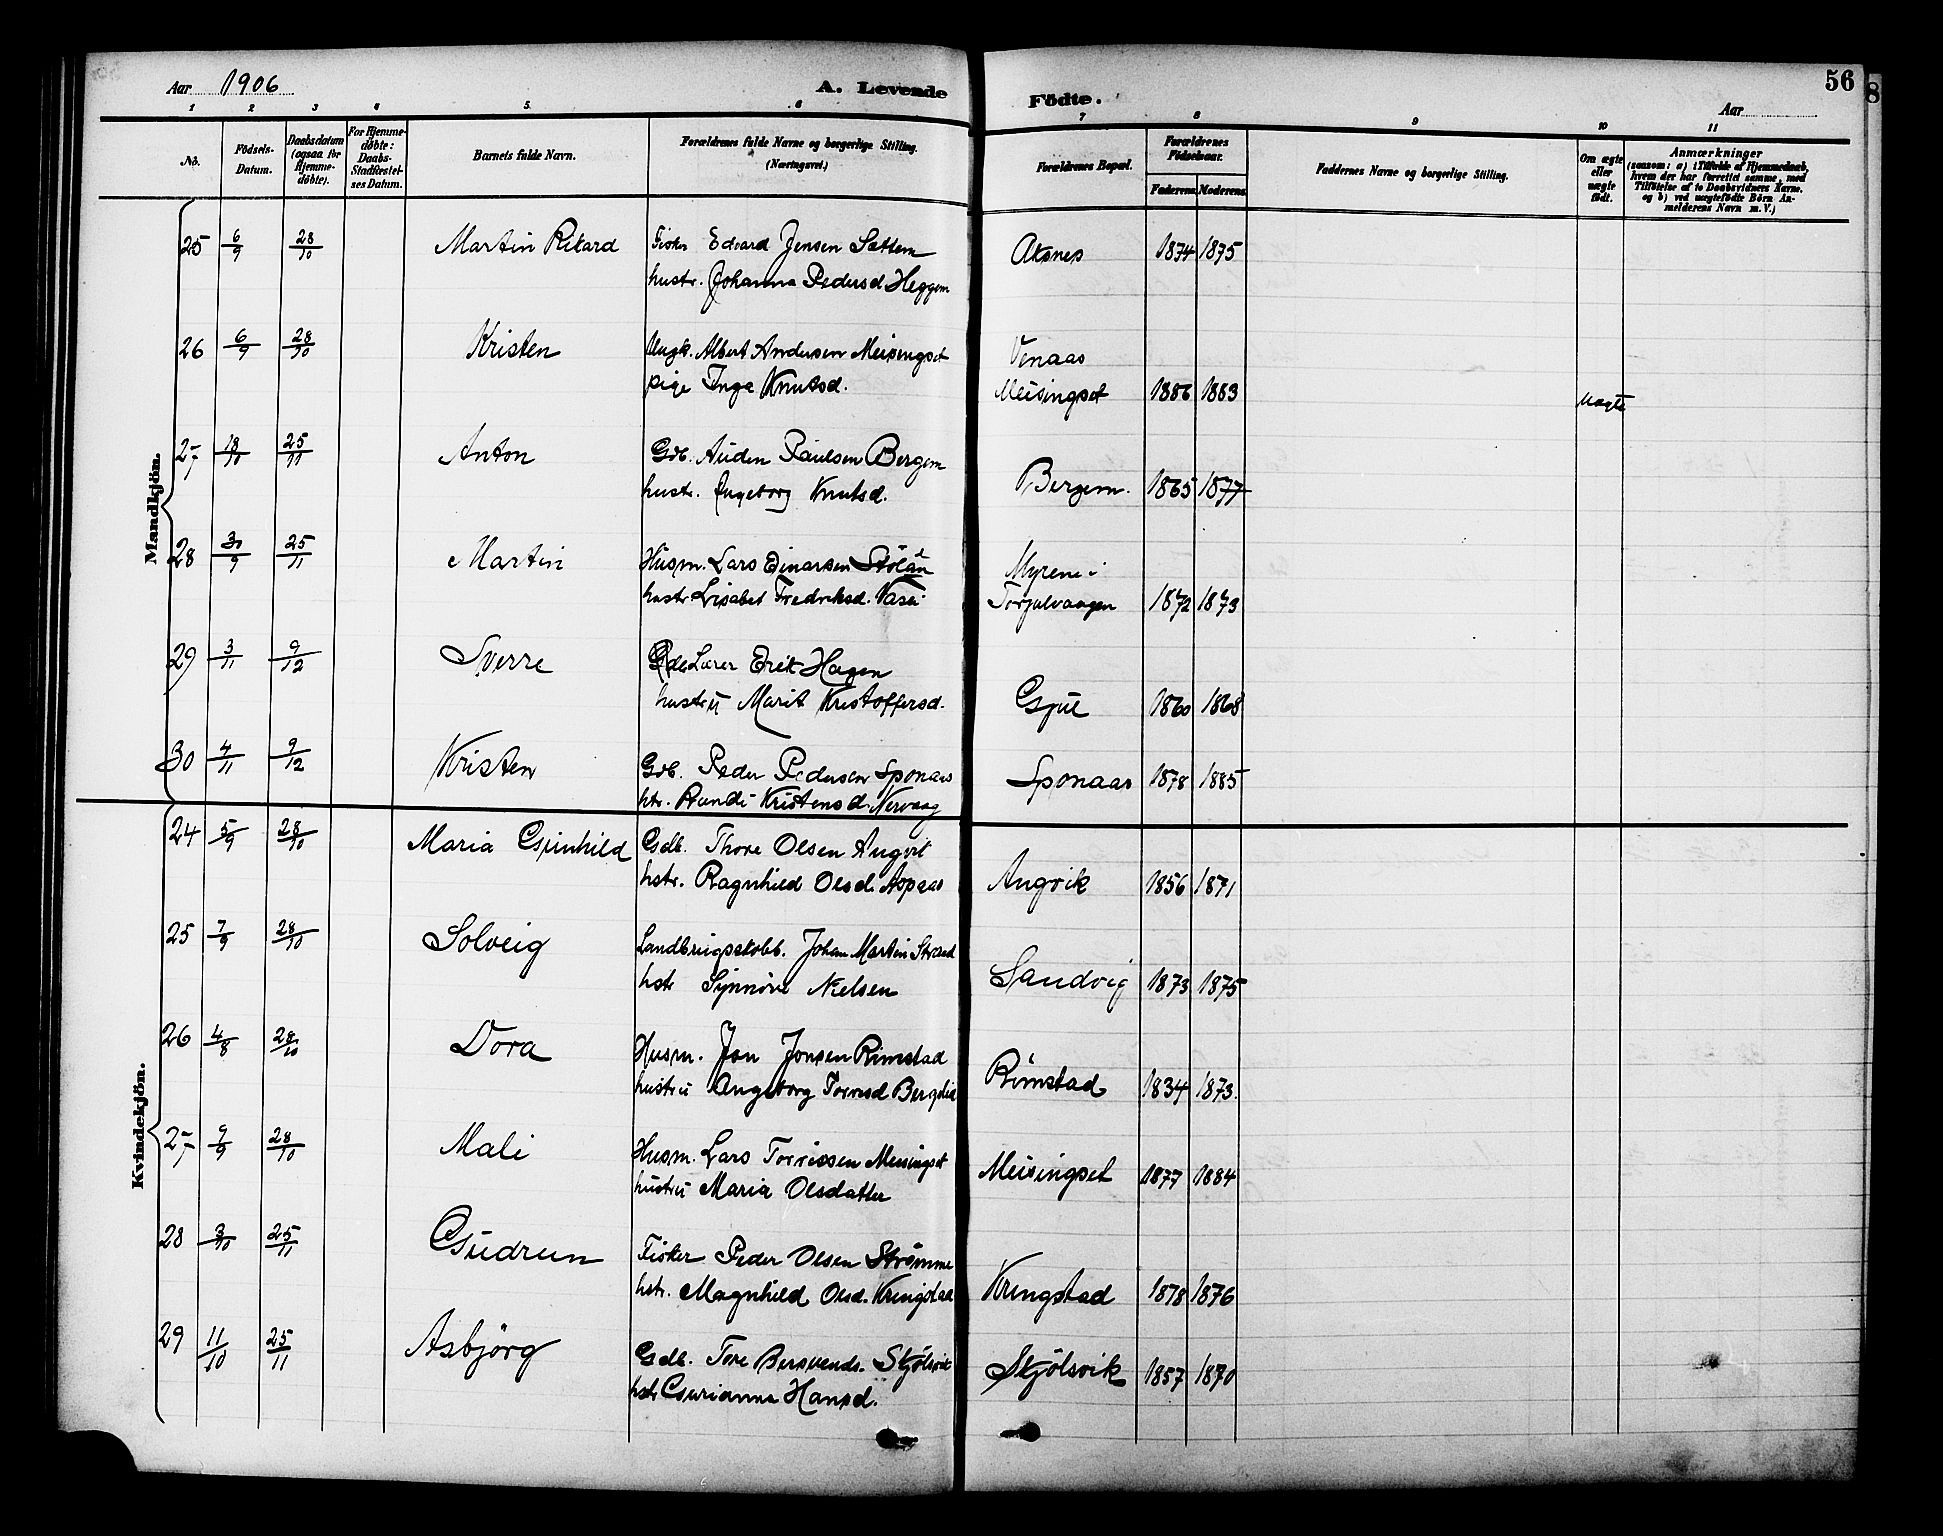 Aar 1906
A. Levende
Födte.
Aar
56
8
1 2 3 4 5. 6 7 8 9 10 11
No.
Födsels-Datum.
Daabsdatum (ogsaa for Hjemme-döbte).
For Hjemme-döbte: Daabs-Stadfæstel-ses Datum.
Barnets fulde Navn.
Forældrenes fulde Navne og borgerlige Stilling. (Næringsvei.)
Forældrenes Bopæl.
Forældrenes Födselsaar.
Faderens. Moderens.
Faddernes Navne og borgerlige Stilling.
Om ægte eller uægte födt.
Anmærkninger
(saasom: a) i Tilfælde af Hjemmedaab, hvem der har forrettet samme, med Tilföielse af to Daabsvidners Navne, og b) ved uægtefödte Börn An-melderens Navn m. V.)
Mandkjön.
25 6/9 28/10 Martin Rikard Fisker Edvard Jensen Sættem Aksnes 1874 1875
hustr. Johanna Pedersd Heggem
26 6/9 28/10 Kristen Ungk. Albert Andersen Meisingset Venaas
pige Inga Knutsd. Meisingset 1886 1883 Uægte
27 18/10 25/11 Anton Gdb. Auden Paulsen Bergem
hustr. Ingeborg Knutsd. Bergem. 1865 1877
28 30/9 25/11 Martin Husm. Lars Einarsen Myrene i
hustr Lisabet Fredriksd. Torjulvaagen 1872 1873
29 3/11 9/12 Sverre Lærer Erik Hagen
hustru Marit Kristoffersd. Gjül 1860 1868
30 4/11 9/12 Kristen Gdb. Peder Pedersen Sponaas Sponaas 1878 1885
htr. Randi Kristensd. Nervaag
Kvindekjön.
24 5/9 28/10 Maria Gunhild Gdb. Thore Olsen Angvik
hstr. Ragnhild Olsd. Aspaas Angvik 1856 1871
25 7/9 28/10 Solveig Johan Martin Strand
hstr Synnöve Nielsen Sandvig 1873 1875
26 4/8 28/10 Dora Husm. Jon Jonsen Rimstad
hustru Ingeborg Torresd Bergslid Rimstad 1834 1873.
27 9/9 28/10 Mali Husm. Lars Torrissen Meisingset
hustru Maria Olsdatter Meisingset 1877 1884
28 3/10 25/11 Gudrun Fisker Peder Olsen Strömme
hstr. Magnhild Olsd. Kringstad Kringstad 1878 1876
29 11/10 25/11 Asbjörg Gdb. Tore Bersvends. Skjölsvik Skjölsvik 1857 1870
hstr Gurianna Hansd.